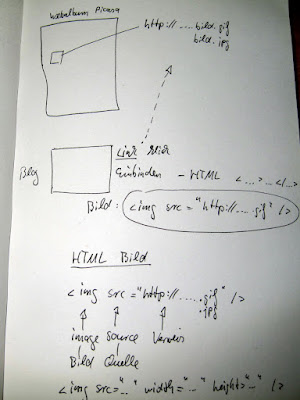 Webalbum Picasa
http://.....bild.gif
bild.jpg
Link
Blog
Einbinden - HTML < ...> ... </...>
Bild: <img src = "http://.....gif" />
HTML Bild
<img src = "http://......gif" />
.jpg
image source Verweis
Bild Quelle
<img src="..." width="..." height="..." />